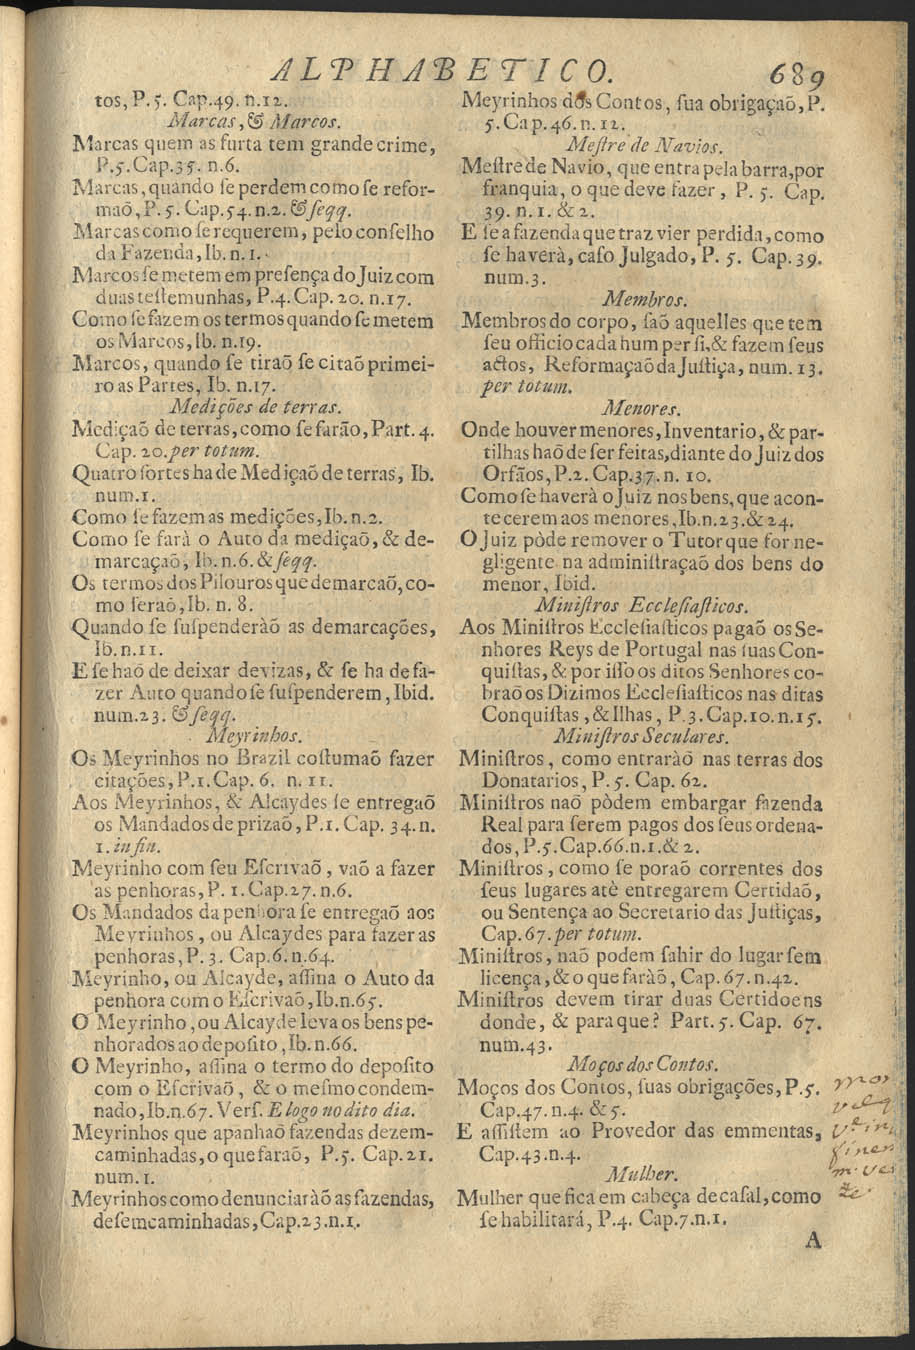 ALPHABETICO. 689
tos, P. 5. Cap.49. n.12.
Marcas, & Marcos.
Marcas quem as furta tem grande crime,
P.5.Cap.35. n.6.
Marcas, quando ſe perdem como ſe refor-
maõ, P. 5. Cap.54.n.2. & ſeqq.
Marcas como ſe requerem, pelo conſelho
da Fazenda, Ib. n. 1.
Marcos ſe metem em preſença do Juiz com
duas teſtemunhas, P.4. Cap. 20. n.17.
Como ſe fazem os termos quando ſe metem
os Marcos, Ib. n.19.
Marcos, quando ſe tiraõ ſe citaõ primei-
ro as Partes, Ib. n.17.
Medições de terras.
Mediçaõ de terras, como ſe farão, Part. 4.
Cap. 20. per totum.
Quatro ſortes ha de Mediçaõ de terras, Ib.
num.1.
Como ſe fazem as medições, Ib. n.2.
Como ſe farà o Auto da mediçaõ, & de-
marcaçaõ, Ib. n.6. & ſeqq.
Os termos dos Pilouros que demarcaõ, co-
mo ſeraõ, Ib. n. 8.
Quando ſe ſuſpenderàõ as demarcações,
Ib. n.11.
E ſe haõ de deixar devizas, & ſe ha de fa-
zer Auto quando ſe ſuſpenderem, Ibid.
num.23. & ſeqq.
Meyrinhos.
Os Meyrinhos no Brazil coſtumaõ fazer
citações, P.1. Cap. 6. n. 11.
Aos Meyrinhos, & Alcaydes ſe entregaõ
os Mandados de prizaõ, P.1. Cap. 34. n.
1. in fin.
Meyrinho com ſeu Eſcrivaõ, vaõ a fazer
as penhoras, P. 1. Cap.27. n.6.
Os Mandados da penhora ſe entregaõ aos
Meyrinhos, ou Alcaydes para fazer as
penhoras, P. 3. Cap.6. n.64.
Meyrinho, ou Alcayde, aſſina o Auto da
penhora com o Eſcrivaõ, Ib.n.65.
O Meyrinho, ou Alcayde leva os bens pe-
nhorados ao depoſito, Ib. n.66.
O Meyrinho, aſſina o termo do depoſito
com o Eſcrivaõ, & o meſmo condem-
nado, Ib.n.67. Verſ. E logo no dito dia.
Meyrinhos que apanhaõ fazendas dezem-
caminhadas, o que faraõ, P.5. Cap.21.
num.1.
Meyrinhos como denunciaràõ as fazendas,
deſemcaminhadas, Cap.23.n.1.
Meyrinhos dos Contos, ſua obrigaçaõ, P.
5. Cap.46. n. 12.
Meſtre de Navios.
Meſtre de Navio, que entra pela barra, por
franquia, o que deve fazer, P. 5. Cap.
39. n. 1. & 2.
E ſe a fazenda que traz vier perdida, como
ſe haverà, caſo Julgado, P. 5. Cap.39.
num.3.
Membros.
Membros do corpo, ſaõ aquelles que tem
ſeu officio cada hum per ſi, & fazem ſeus
actos, Reformaçaõ da Juſtiça, num. 13.
per totum.
Menores.
Onde houver menores, Inventario, & par-
tilhas haõ de ſer feitas, diante do Juiz dos
Orfãos, P.2. Cap.37. n. 10.
Como ſe haverà o Juiz nos bens, que acon-
tecerem aos menores, Ib.n.23.& 24.
O Juiz pòde remover o Tutor que for ne-
gligente na adminiſtraçaõ dos bens do
menor, Ibid.
Miniſtros Eccleſiaſticos.
Aos Miniſtros Eccleſiaſticos pagaõ os Se-
nhores Reys de Portugal nas ſuas Con-
quiſtas, & por iſſo os ditos Senhores co-
braõ os Dizimos Eccleſiaſticos nas ditas
Conquiſtas, & Ilhas, P.3. Cap.10. n.15.
Miniſtros Seculares.
Miniſtros, como entraràõ nas terras dos
Donatarios, P. 5. Cap. 62.
Miniſtros naõ pòdem embargar fazenda
Real para ſerem pagos dos ſeus ordena-
dos, P.5.Cap.66.n.1.& 2.
Miniſtros, como ſe poraõ correntes dos
ſeus lugares atè entregarem Certidaõ,
ou Sentença ao Secretario das Juſtiças,
Cap.67. per totum.
Miniſtros, naõ podem ſahir do lugar ſem
licença, & o que faràõ, Cap. 67. n.42.
Miniſtros devem tirar duas Certidoens
donde, & para que? Part. 5. Cap. 67.
num.43.
Moços dos Contos.
Moços dos Contos, ſuas obrigações, P.5.
Cap.47. n.4. & 5.
E aſſiſtem ao Provedor das emmentas,
Cap.43.n.4.
Mulher.
Mulher que fica em cabeça de caſal, como
ſe habilitará, P.4. Cap.7.n.1.
A